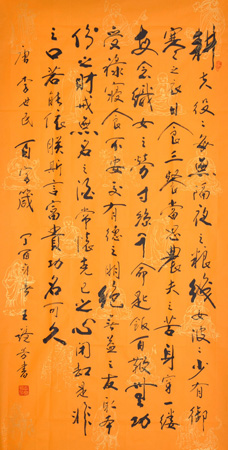 耕夫役々多無隔夜之粮織女波々少有御
寒之衣日食三餐當思農夫之苦身穿一缕
每念織女之勞寸絲千命匙飯百鞭無功
受祿寢食不安交有德之朋絕無益之友取本
份之財戒無名之酒常懷克己之心闭却是非
之口若能依朕斯言富貴功名可久
唐李世民百字箴 丁酉 王 芳書